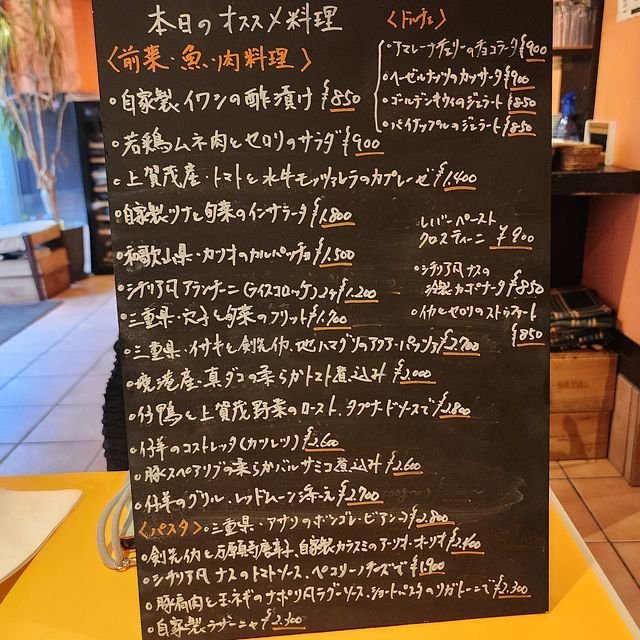 本日のオススメ料理
〈前菜・魚・肉料理〉
・自家製イワシの酢漬け ¥850
・若鶏ムネ肉とセロリのサラダ ¥900
・上賀茂産・トマトと水牛モッツァレラのカプレーゼ ¥1,400
・自家製ツナと旬菜のインサラータ ¥1,800
・和歌山県・カツオのカルパッチョ ¥1,500
・シチリア風アランチーニ(ライスコロッケ)2ヶ ¥1,200
・三重県・穴子と旬菜のフリット ¥1,700
・三重県・イサキと剣先イカ、地ハマグリのアクアパッツァ ¥2,700
・境港産・真ダコの柔らかトマト煮込み ¥2,000
・仔鴨と上賀茂野菜のロースト、タプナードソースで ¥2,800
・仔羊のコストレッタ(カツレツ) ¥2,600
・豚スペアリブの柔らかバルサミコ煮込み ¥2,600
・仔羊のグリル・レッドムーン添え ¥2,700
〈パスタ〉・三重県・アサリのボンゴレ・ビアンコ ¥2,800
・剣先イカと万願寺唐辛子、自家製カラスミのアーリオ・オーリオ ¥2,400
・シチリア風 ナスのトマトソース、ペコリーノチーズで ¥1,900
・豚肩肉と玉ネギのナポリ風ラグーソース、ショートパスタのリガトーニで ¥2,300
・自家製ラザーニャ ¥2,300
〈ドルチェ〉
・アマレーナチェリーのチョコラータ ¥900
・ヘーゼルナッツのカッサータ ¥900
・ゴールデンキウイのジェラート ¥850
・パイナップルのジェラート ¥850
レバーペースト
クロスティーニ ¥900
・シチリア風ナスの
冷製カポナータ ¥850
・イカとセロリのストラパート
¥850